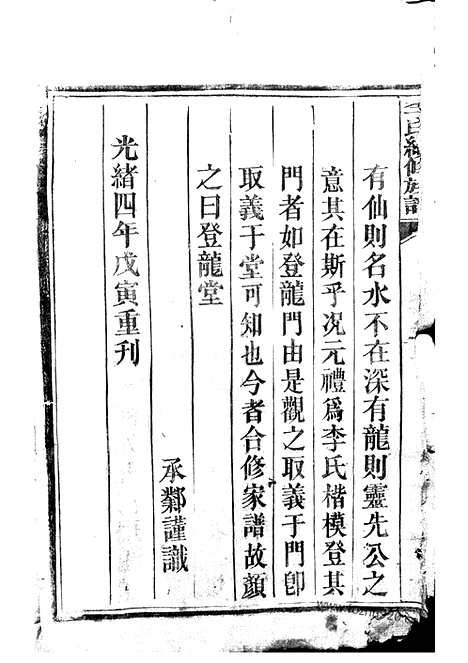 李氏續修族譜
有仙則名水不在深有龍則靈先公之
意其在斯乎況元禮爲李氏楷模登其
門者如登龍門由是觀之取義于門卽
取義于堂可知也今者合修家譜故顔
之曰登龍堂
承鄴謹識
光緒四年戊寅重刊